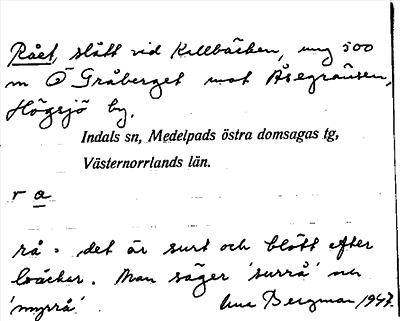 Rået, slått vid Kallbäcken, ung 500
m Ö Gråberget mot Åsegränsen,
Högsjö by.
Indals sn, Medelpads östra domsagas tg,
Västernorrlands län.
r a
rå = det är surt och blött efter
bäcker. Man säger 'surrå' och
'myrrå'. Ana Bergman 1947.